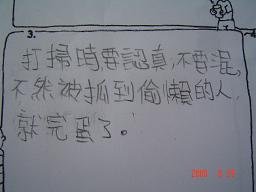 3.
打掃時要認真,不要混,
不然被抓到偷懶的人,
就完蛋了。